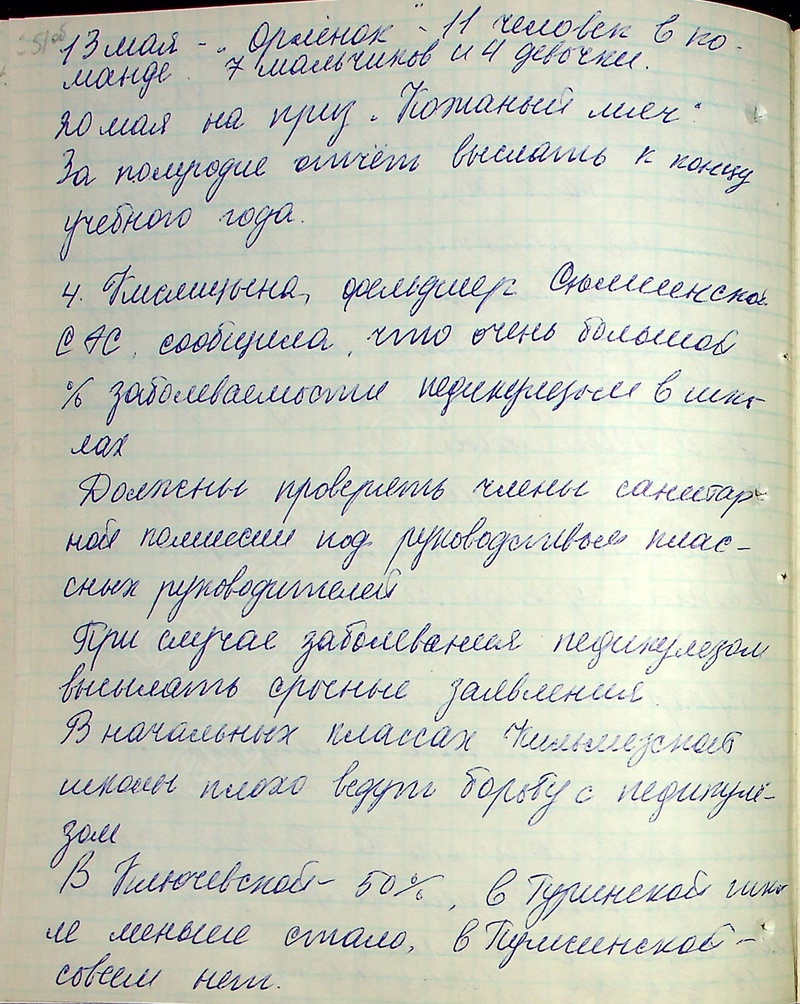 51об
13 мая - „Орлёнок" - 11 человек в ко-
манде. 7 мальчиков и 4 девочки.
20 мая на приз „Кожаный мяч"
За полугодие отчёт выслать к концу
учебного года.
4. Кислицына, фельдшер
СЭС, сообщила, что очень большой
% заболеваемости педикулезом в шко-
лах
Должны проверять члены санитар-
ной комиссии под руководством клас-
сных руководителей
При случае заболевания педикулезом
высылать срочные заявления
В начальных классах Кильмезской
школы плохо ведут борьбу с педикуле-
зом
В Ключевской - 50%, в Туринской шко
ле меньше стало, в
совсем нет.